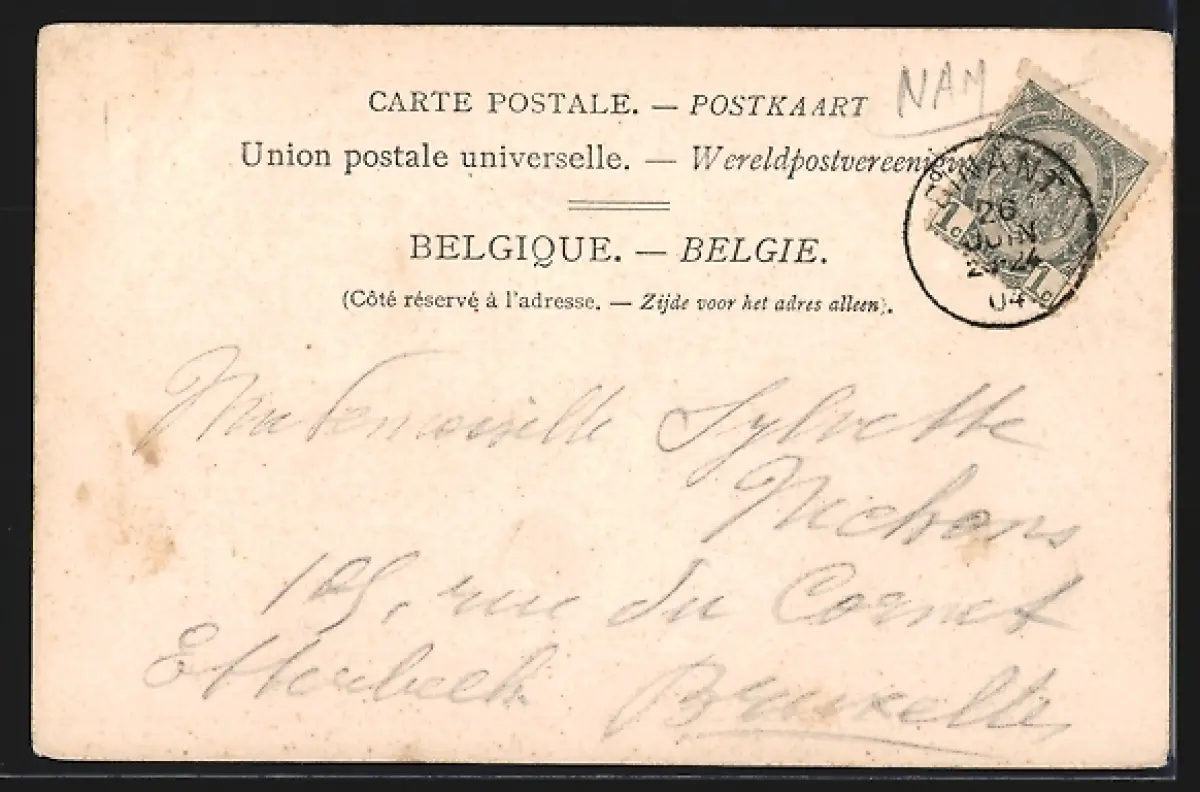 NAM
CARTE POSTALE. — POSTKAART
Union postale universelle. — Wereldpostvereeniging
BELGIQUE. — BELGIE.
(Côté réservé à l'adresse. — Zijde voor het adres alleen).
DINANT
26
JUIN
04
1c
1c
Mademoiselle Sylvette
rue du Cornet
Etterbeek Bruxelles